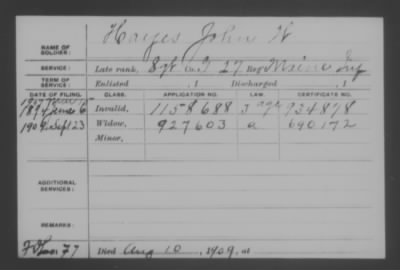 NAME OF SOLDIER: Hayes John W
SERVICE: Late rank, Sgt Co. I 27 Reg't Maine Inf
TERM OF SERVICE: Enlisted , 1 Discharged , 1
DATE OF FILING. CLASS. APPLICATION NO. LAW. CERTIFICATE NO.
Invalid, 1158688 934878
1909 Sept 23 Widow, 927603 a 690172
Minor,
ADDITIONAL SERVICES:
REMARKS:
77 Died Aug 10, 1909, at